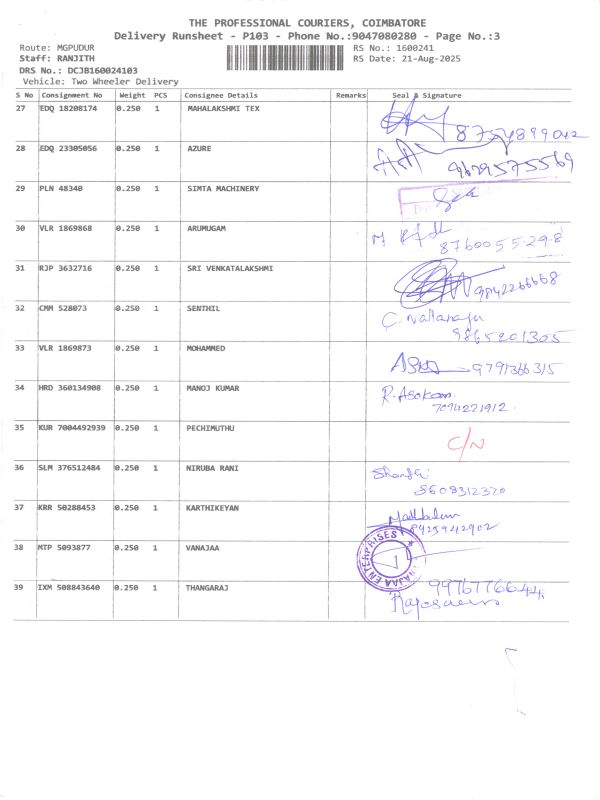 THE PROFESSIONAL COURIERS, COIMBATORE
Delivery Runsheet - P103 - Phone No.:9047080280 - Page No.:3
Route: MGPUDUR RS No.: 1600241
Staff: RANJITH RS Date: 21-Aug-2025
DRS No.: DCJB160024103
Vehicle: Two Wheeler Delivery
S No Consignment No Weight PCS Consignee Details Remarks Seal & Signature
27 EDQ 18208174 0.250 1 MAHALAKSHMI TEX
8754899042
28 EDQ 23305056 0.250 1 AZURE
9629575569
29 PLN 48340 0.250 1 SIMTA MACHINERY
30 VLR 1869868 0.250 1 ARUMUGAM
8760055298
31 RJP 3632716 0.250 1 SRI VENKATALAKSHMI
9842266668
32 CMM 528073 0.250 1 SENTHIL
9865201305
33 VLR 1869873 0.250 1 MOHAMMED
9791366315
34 HRD 360134908 0.250 1 MANOJ KUMAR R. Asokan
7094221912
35 KUR 7004492939 0.250 1 PECHIMUTHU
C/N
36 SLM 376512484 0.250 1 NIRUBA RANI
8608312320
37 KRR 50288453 0.250 1 KARTHIKEYAN
38 MTP 5093877 0.250 1 VANAJAA
ENTERPRISES
39 IXM 508843640 0.250 1 THANGARAJ